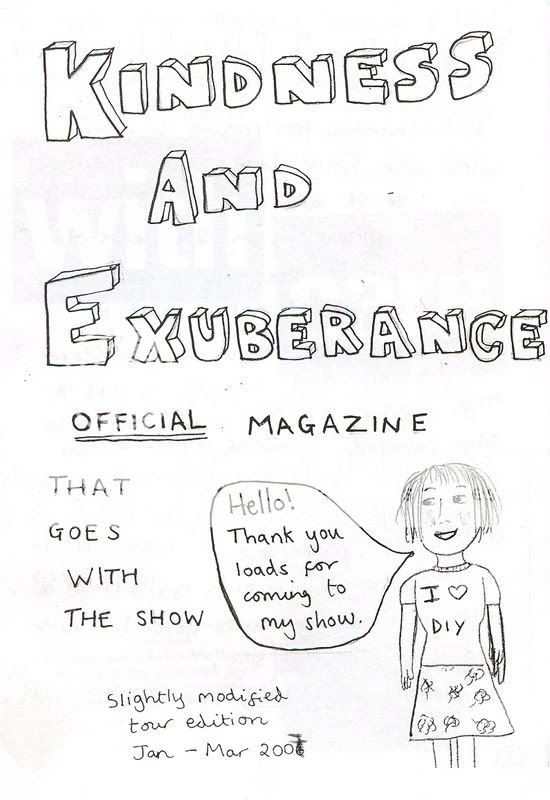 KINDNESS
AND
EXUBERANCE
OFFICIAL MAGAZINE
THAT
GOES
WITH
THE SHOW
Hello!
Thank you
loads for
coming to
my show.
I ♡
DIY
Slightly modified
tour edition
Jan – Mar